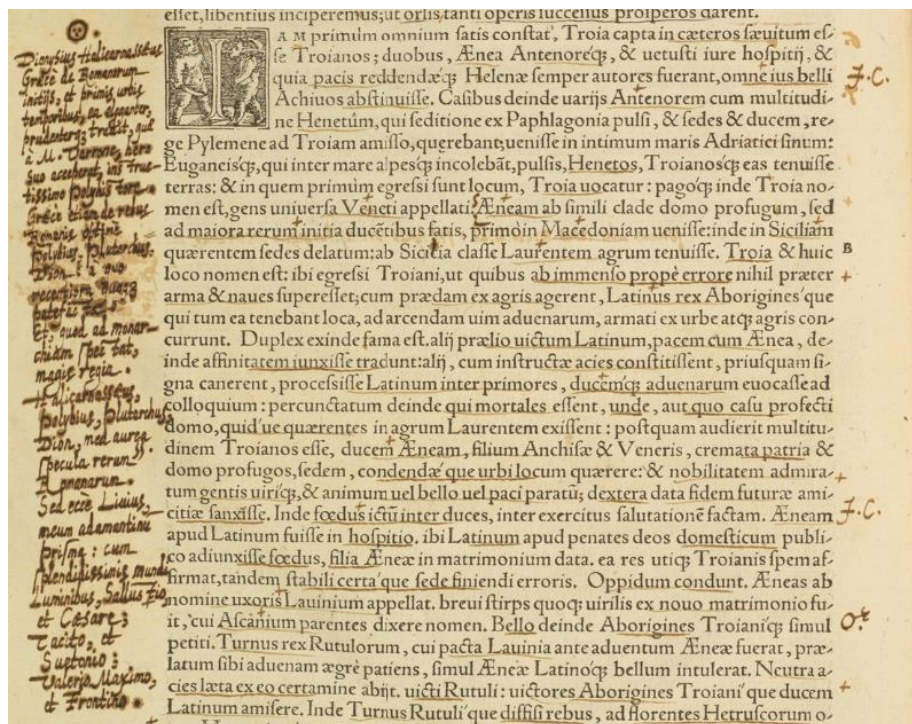 eſſet, libentius inciperemus; ut orſis tanti operis ſucceſſus proſperos darent.
IAM primum omnium ſatis conſtat, Troia capta in cæteros ſæuitum eſ-
ſe Troianos; duobus, Ænea Antenoreq́;, & uetuſti iure hoſpitij, &
quia pacis reddendæq́; Helenæ ſemper autores fuerant, omne ius belli
Achiuos abſtinuiſſe. Caſibus deinde uarijs Antenorem cum multitudi-
ne Henetûm, qui ſeditione ex Paphlagonia pulſi, & ſedes & ducem, re-
ge Pylemene ad Troiam amiſſo, quærebant; ueniſſe in intimum maris Adriatici ſinum:
Euganeisq́;, qui inter mare alpesq́; incolebāt, pulſis, Henetos, Troianosq́; eas tenuiſſe
terras: & in quem primùm egreſſi ſunt locum, Troia uocatur: pagoq́; inde Troia no-
men eſt, gens uniuerſa Veneti appellati. Æneam ab ſimili clade domo profugum, ſed
ad maiora rerum initia ducētibus fatis, primò in Macedoniam ueniſſe: inde in Siciliam
quærentem ſedes delatum: ab Sicilia claſſe Laurentem agrum tenuiſſe. Troia & huic
B
loco nomen eſt: ibi egreſſi Troiani, ut quibus ab immenſo propè errore nihil præter
arma & naues ſupereſſet; cum prædam ex agris agerent, Latinus rex Aborigines'que
qui tum ea tenebant loca, ad arcendam uim aduenarum, armati ex urbe atq́; agris con-
currunt. Duplex exinde fama eſt. alij prælio uictum Latinum, pacem cum Ænea, de-
inde affinitatem iunxiſſe tradunt: alij, cum inſtructæ acies conſtitiſſent, priuſquam ſi-
gna canerent, proceſſiſſe Latinum inter primores, ducemq́; aduenarum euocaſſe ad
colloquium: percunctatum deinde qui mortales eſſent, unde, aut quo caſu profecti
domo, quid'ue quærentes in agrum Laurentem exiſſent: poſtquam audierit multitu-
dinem Troianos eſſe, ducem Æneam, filium Anchiſæ & Veneris, cremata patria &
domo profugos, ſedem, condendæ'que urbi locum quærere: & nobilitatem admira-
tum gentis uiriq́;, & animum uel bello uel paci paratū; dextera data fidem futuræ ami-
citiæ sanxiſſe. Inde fœdus ictũ inter duces, inter exercitus ſalutationē factam. Æneam
apud Latinum fuiſſe in hoſpitio. ibi Latinum apud penates deos domeſticum publi-
co adiunxiſſe fœdus, filia Æneæ in matrimonium data. ea res utiq́; Troianis ſpem af-
firmat, tandem ſtabili certa'que ſede finiendi erroris. Oppidum condunt. Æneas ab
nomine uxoris Lauinium appellat. breui ſtirps quoq́; uirilis ex nouo matrimonio fu-
it, cui Aſcanium parentes dixere nomen. Bello deinde Aborigines Troianiq́; ſimul
petiti. Turnus rex Rutulorum, cui pacta Lauinia ante aduentum Æneæ fuerat, præ-
latum ſibi aduenam ægrè patiens, ſimul Æneæ Latinoq́; bellum intulerat. Neutra a-
cies læta ex eo certamine abijt. uicti Rutuli: uictores Aborigines Troiani'que ducem
Latinum amiſere. Inde Turnus Rutuli'que diffiſi rebus, ad florentes Hetruſcorum o-
Dionysius Halicarnassæus
Græcè de Romanorum
initijs, et primis urbis
temporibus, ea eleganter,
prudenterq; tradit, quæ
à M. Varrone, uero
suo acceperat, instruc-
tissimo Polyhistore.
Græcè etiam de rebus
Romanis optimè
Polybius, Plutarchus,
Dion:
Et, quod ad monar-
chiam spectat,
magis regia.
Halicarnassæus,
Polybius, Plutarchus,
Dion, med aurea
specula rerum
Romanarum.
Sed ecce Liuius,
meum adamantinũ
prisma: cum
splendidissimis mundi
Luminibus, Sallustio,
et Cæsare;
Tacito, et
Suetonio;
Valerio Maximo,
et Frontino.
J. C.
J. C.
Or.